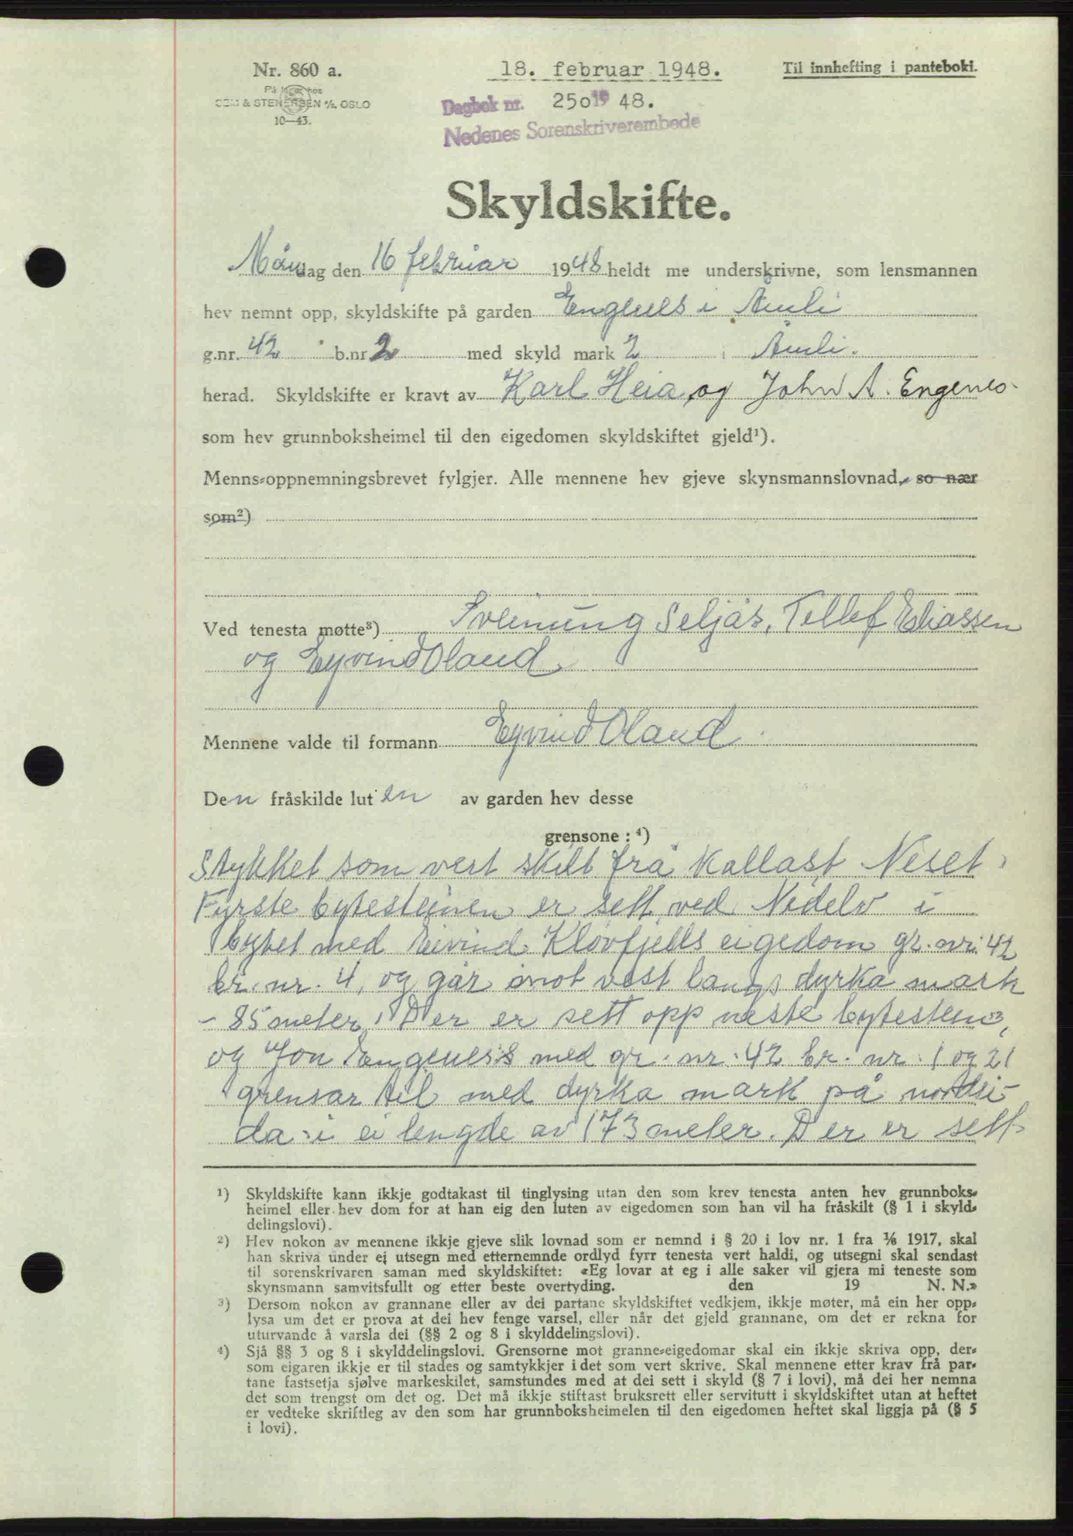 Nr. 860 a.
18. februar 1948.
Til innhefting i panteboki.
SEM & STENERSEN A/S, OSLO
10—43.
Dagbok nr. 250 19 48.
Nedenes Sorenskriverembede
Skyldskifte.
Måndag den 16 februar 1948 heldt me underskrivne, som lensmannen
hev nemnt opp, skyldskifte på garden Engenes i Åmli
g.nr. 42 b.nr. 2 med skyld mark 2 i Åmli.
herad. Skyldskifte er kravt av Karl Heia, og John A. Engenes
som hev grunnboksheimel til den eigedomen skyldskiftet gjeld¹).
Menns-oppnemningsbrevet fylgjer. Alle mennene hev gjeve skynsmannslovnad, so nær
som²)
Ved tenesta møtte³) Sveinung Seljås, Tellef Eliassen
og Eyvind Oland
Mennene valde til formann Eyvind Oland.
Den fråskilde luten av garden hev desse
grensone: ⁴)
Stykket som vert skilt frå kallast Neset.
Fyrste bytesteinen er sett ved Nidelv i
bytet med Eivind Kløvfjells eigedom gr. nr. 42
br. nr. 4, og går imot vest langs dyrka mark
- 85 meter. Der er sett opp neste bytestein,
og Jon Engeness med gr. nr. 42 br. nr. 1 og 21
grensar til med dyrka mark på nordsi-
da i ei lengde av 173 meter. Der er sett
¹) Skyldskifte kann ikkje godtakast til tinglysing utan den som krev tenesta anten hev grunnboks-
heimel eller hev dom for at han eig den luten av eigedomen som han vil ha fråskilt (§ 1 i skyld-
delingslovi).
²) Hev nokon av mennene ikkje gjeve slik lovnad som er nemnd i § 20 i lov nr. 1 fra ⅙ 1917, skal
han skriva under ei utsegn med etternemnde ordlyd fyrr tenesta vert haldi, og utsegni skal sendast
til sorenskrivaren saman med skyldskiftet: «Eg lovar at eg i alle saker vil gjera mi teneste som
skynsmann samvitsfullt og etter beste overtyding. den 19 N. N.»
³) Dersom nokon av grannane eller av dei partane skyldskiftet vedkjem, ikkje møter, må ein her opp-
lysa um det er prova at dei hev fenge varsel, eller når det gjeld grannane, om det er rekna for
uturvande å varsla dei (§§ 2 og 8 i skylddelingslovi).
⁴) Sjå §§ 3 og 8 i skylddelingslovi. Grensorne mot granne-eigedomar skal ein ikkje skriva opp, der-
som eigaren ikkje er til stades og samtykkjer i det som vert skrive. Skal mennene etter krav frå par-
tane fastsetja sjølve markeskilet, samstundes med at dei sett i skyld (§ 7 i lovi), må dei her nemna
det som trengst om det og. Det må ikkje stiftast bruksrett eller servitutt i skyldskiftet utan at heftet
er vedteke skriftleg av den som har grunnboksheimelen til den eigedomen heftet skal liggja på (§ 5
i lovi).